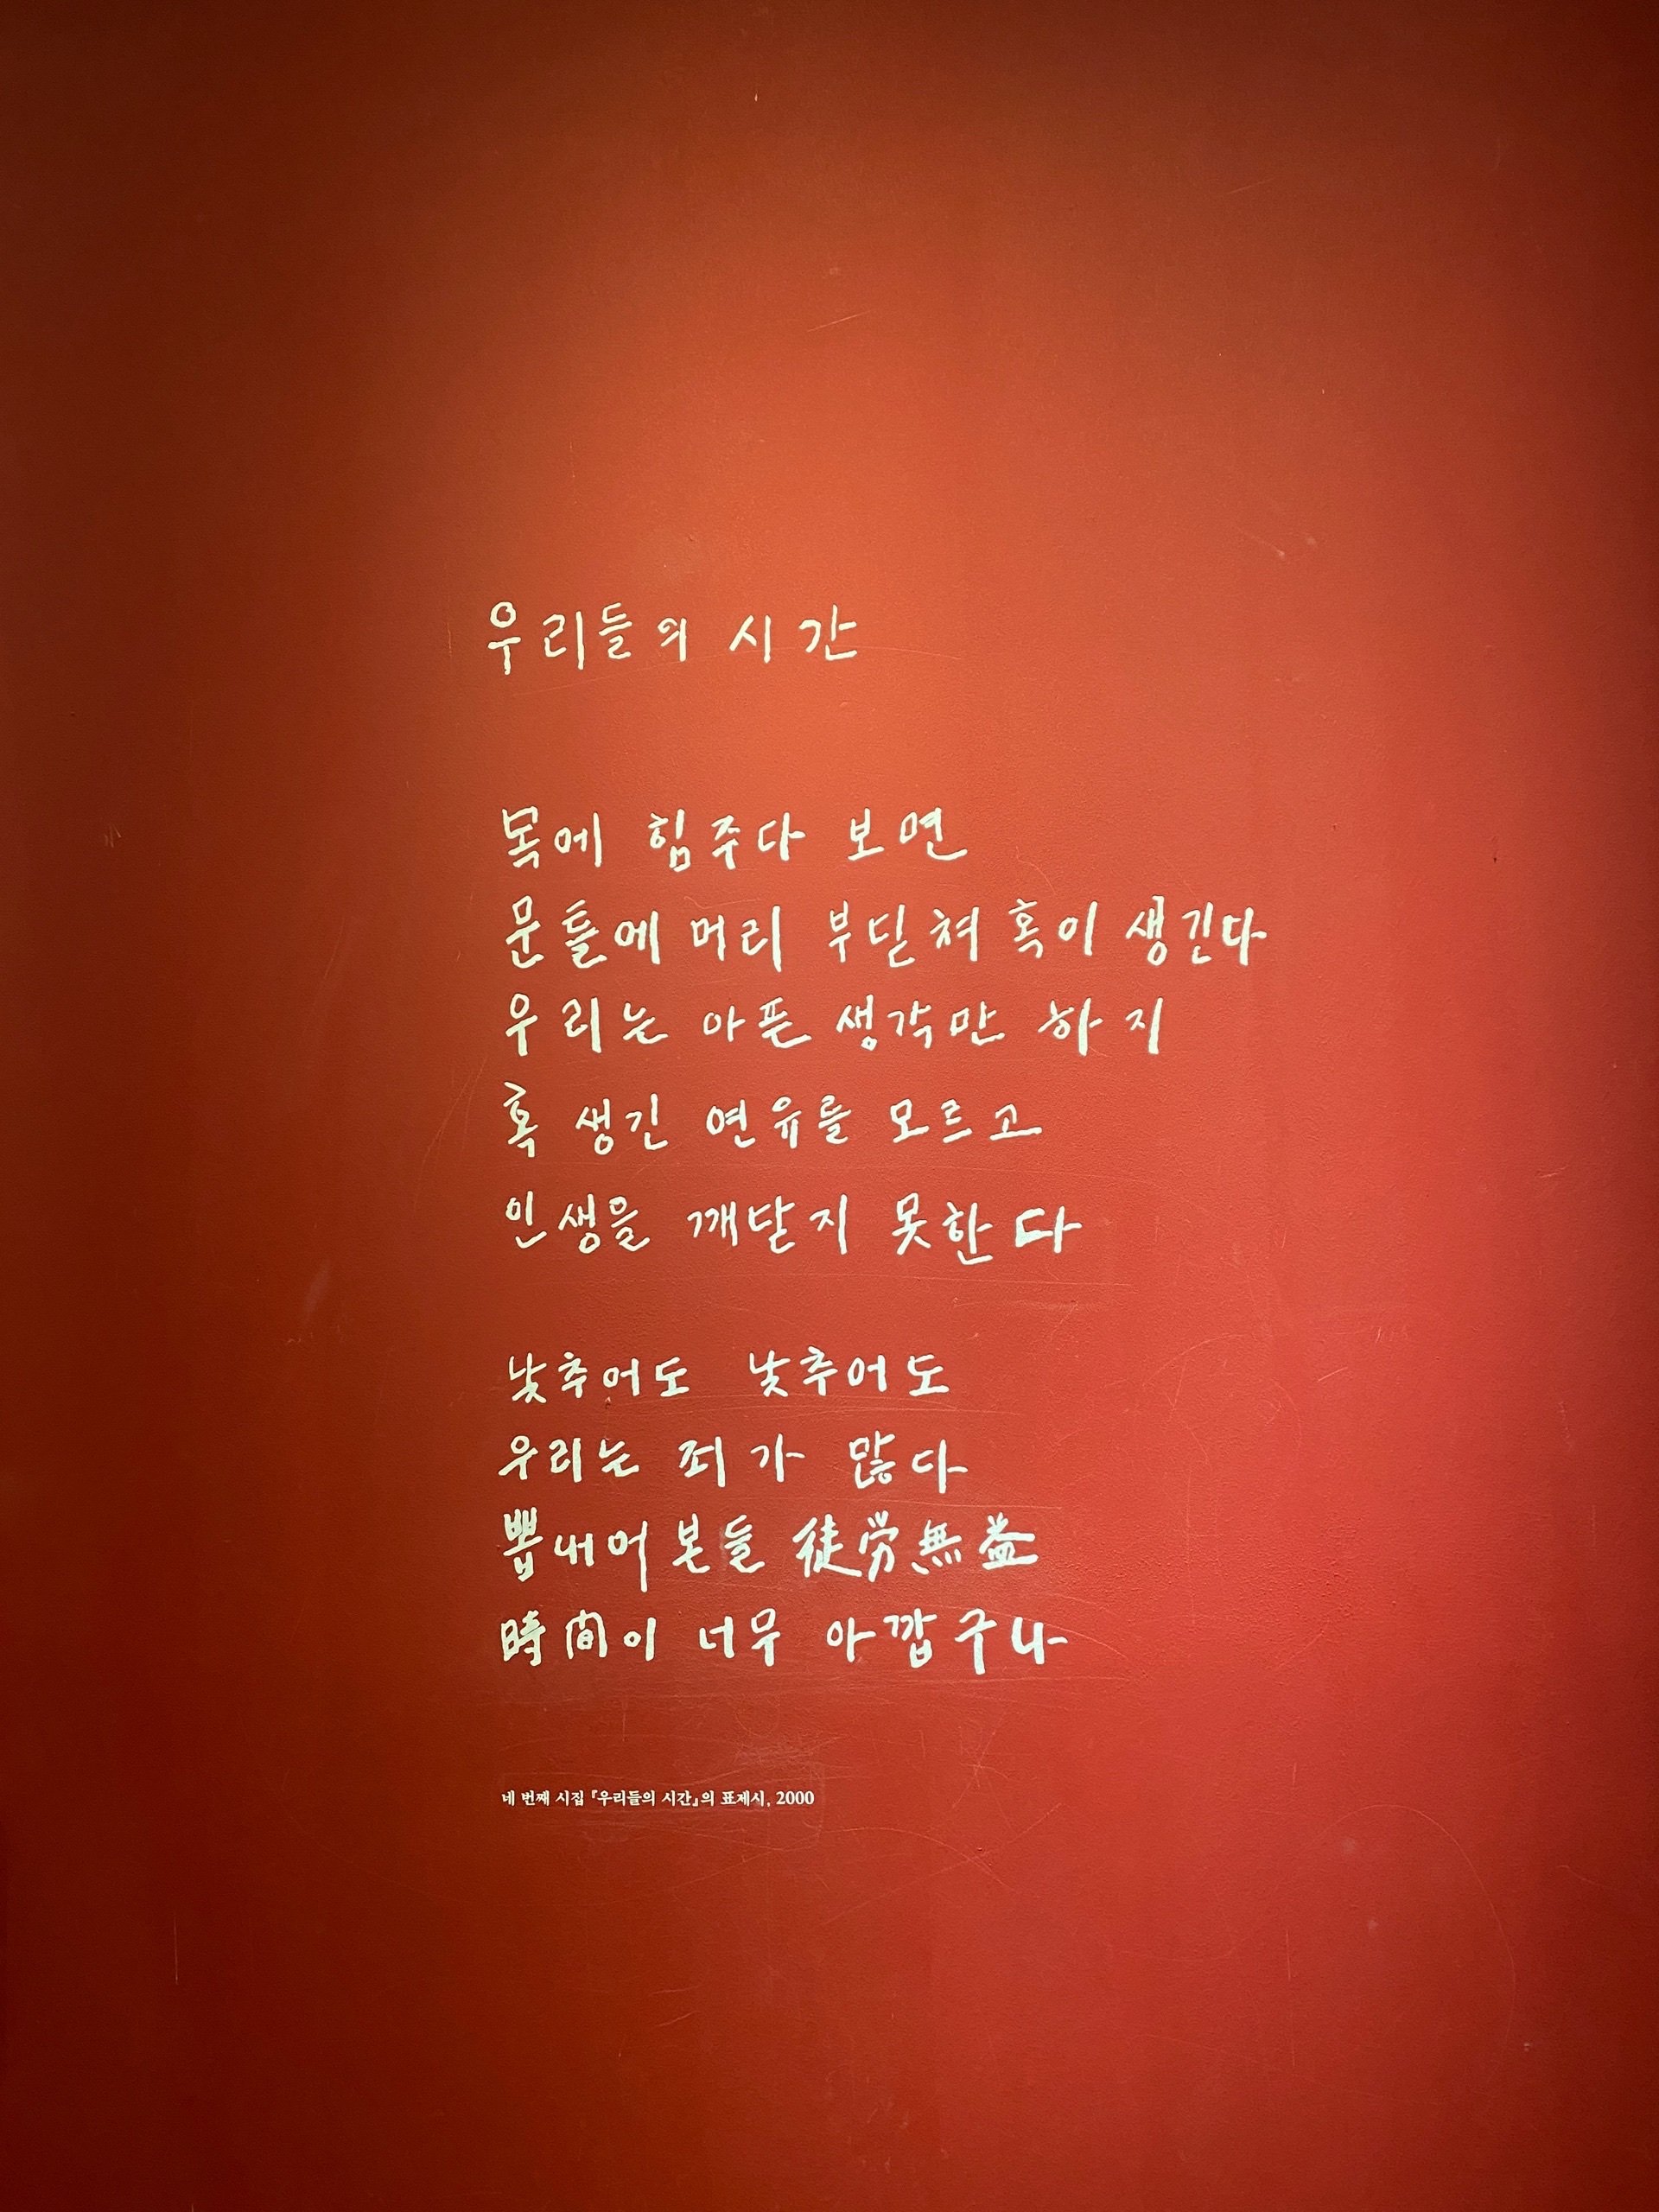 우리들의 시간
목에 힘주다 보면
문틀에 머리 부딛쳐 혹이 생긴다
우리는 아픈 생각만 하지
혹 생긴 연유를 모르고
인생을 깨닫지 못한다
낮추어도 낮추어도
우리는 죄가 많다
뽑내어본들 徒労無益
時間이 너무 아깝구나
네 번째 시집 『우리들의 시간』의 표제시, 2000